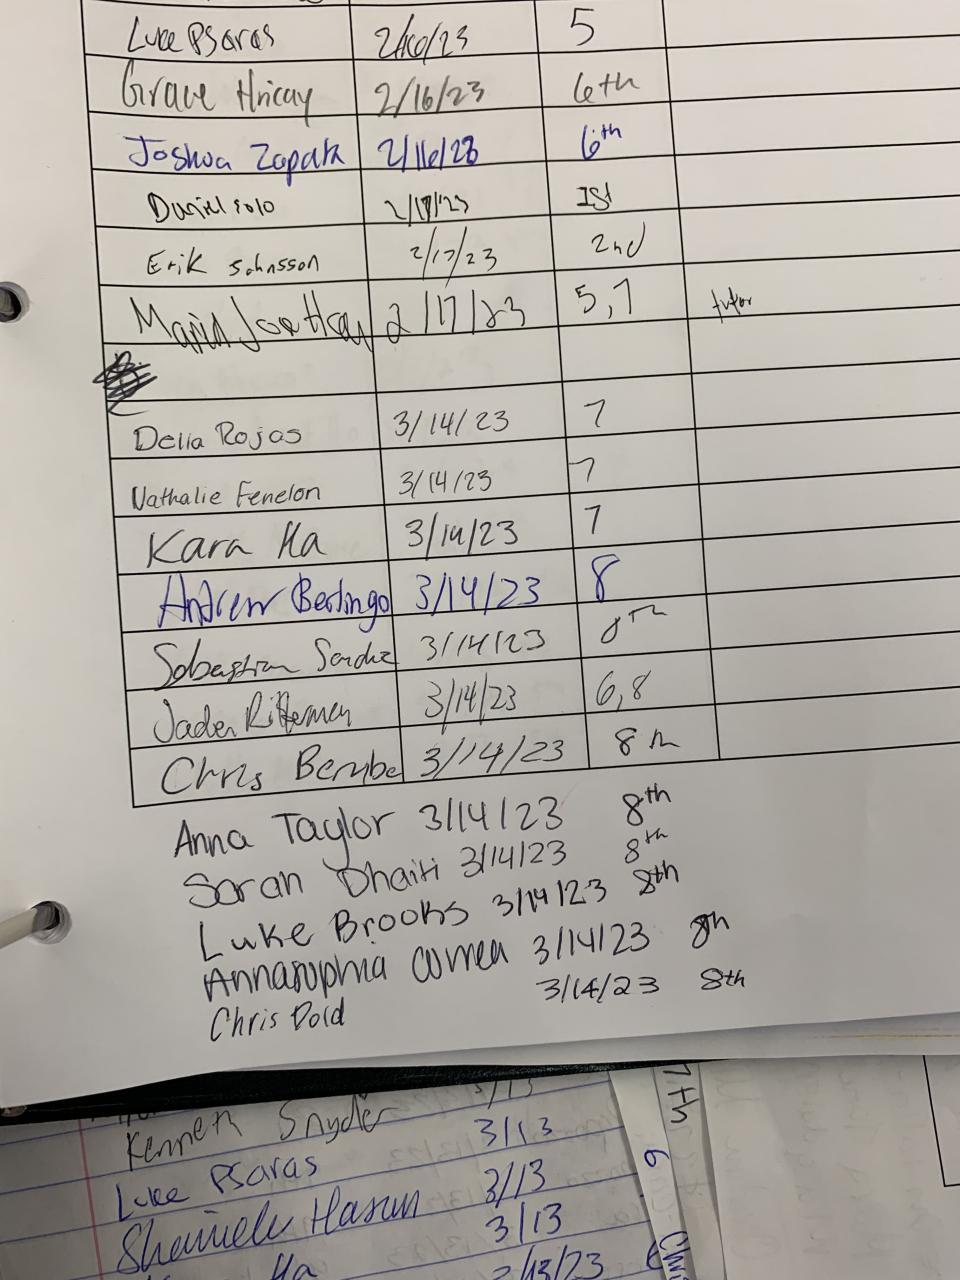 Luke Psaras 2/16/23 5
Grace 2/16/23 6th
Joshua Zapata 2/16/23 6th
Daniel Solo 2/17/23 1st
Erik Johnsson 2/17/23 2nd
Maria Jose 2/17/23 5,7 tutor
Delia Rojas 3/14/23 7
Nathalie Fenelon 3/14/23 7
Kara Ha 3/14/23 7
Andrew Berlingo 3/14/23 8
3/14/23 8th
Jaden Ritterman 3/14/23 6,8
Chris 3/14/23 8th
Anna Taylor 3/14/23 8th
Sarah Dhaiti 3/14/23 8th
Luke Brooks 3/14/23 8th
Annasophia Correa 3/14/23 8th
Chris Dold 3/14/23 8th
Kenneth Snyder 3/13
Luke Psaras 3/13
Hasun 3/13
Ha
7th